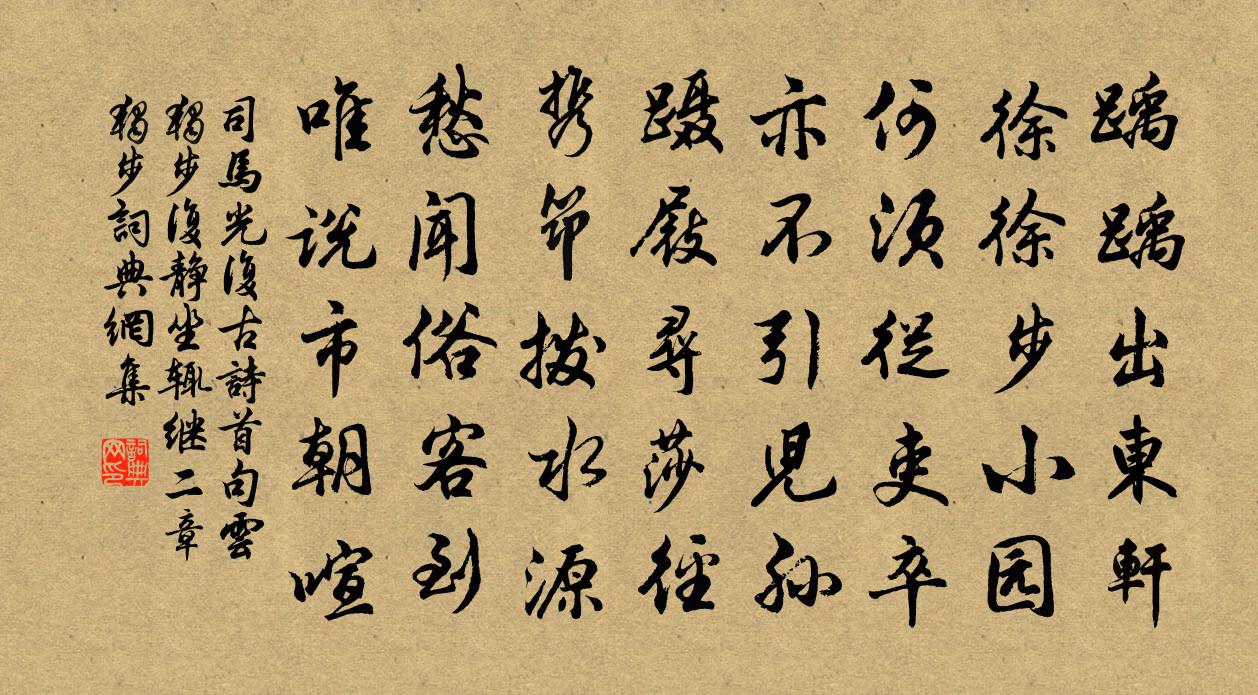 踽踽出東軒
徐徐步小园
何須從吏卒
亦不引兒孙
蹑屐尋莎徑
携笻拨水源
愁闻俗客到
唯说市朝喧
司馬光復古詩首句雲
獨步復靜坐辄继二章
獨步詞典網集
詞典網印